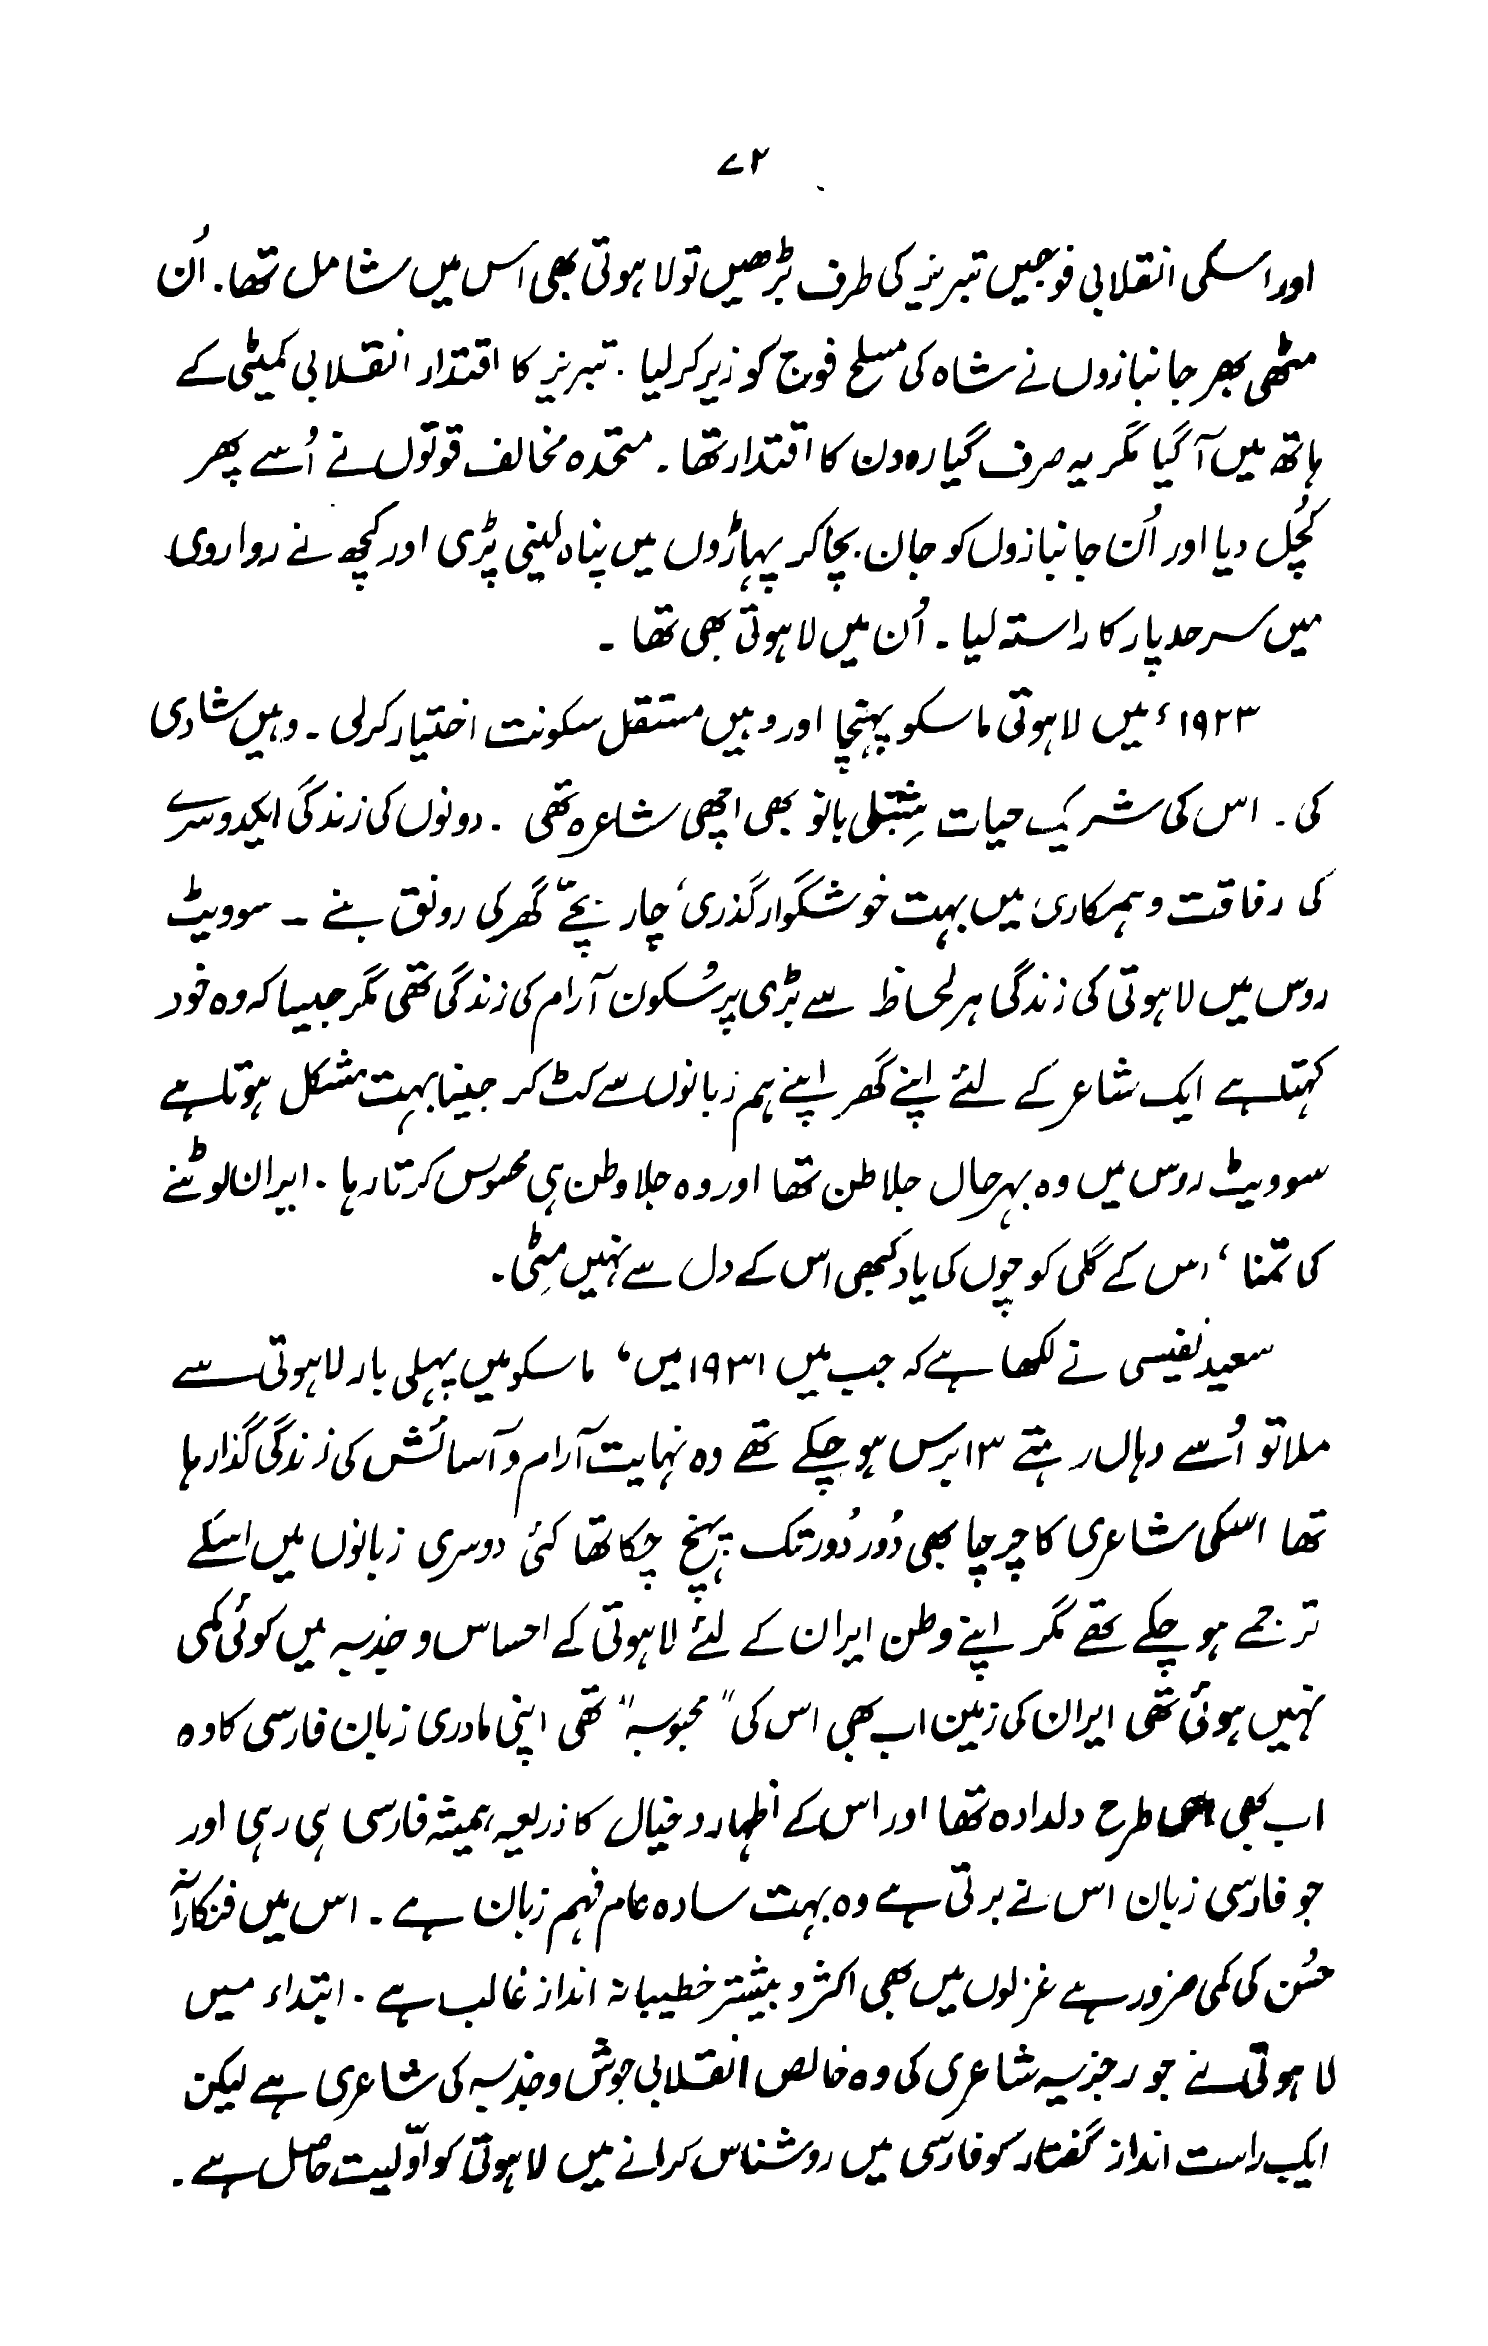 ۷۲
اور اسکی انقلابی فوجیں تبریز کی طرف بڑھیں تو لاہوتی بھی اس میں شامل تھا۔ اُن
مٹھی بھر جانبازوں نے شاہ کی مسلح فوج کو زیر کر لیا۔ تبریز کا اقتدار انقلابی کمیٹی کے
ہاتھ میں آ گیا مگر یہ صرف گیارہ دن کا اقتدار تھا۔ متحدہ مخالف قوتوں نے اُسے پھر
کُچل دیا اور اُن جانبازوں کو جان بچا کر پہاڑوں میں پناہ لینی پڑی اور کچھ نے رواروی
میں سرحد پار کا راستہ لیا۔ اُن میں لاہوتی بھی تھا۔
۱۹۲۳ء میں لاہوتی ماسکو پہنچا اور وہیں مستقل سکونت اختیار کر لی۔ وہیں شادی
کی۔ اس کی شریک حیات بانو بھی اچھی شاعرہ تھی۔ دونوں کی زندگی ایکدوسرے
کی رفاقت و ہمکاری میں بہت خوشگوار گذری، چار بچّے گھر کی رونق بنے۔ سوویٹ
روس میں لاہوتی کی زندگی ہر لحاظ سے بڑی پرسُکون آرام کی زندگی تھی مگر جیسا کہ وہ خود
کہتا ہے ایک شاعر کے لئے اپنے گھر اپنے ہم زبانوں سے کٹ کر جینا بہت مشکل ہوتا ہے
سوویٹ روس میں وہ بہرحال جلاطن تھا اور وہ جلاوطن ہی محسوس کرتا رہا۔ ایران لوٹنے
کی تمنا، اس کے گلی کوچوں کی یاد کبھی اس کے دل سے نہیں مِٹی۔
سعید نفیسی نے لکھا ہے کہ جب میں ۱۹۳۱ میں، ماسکو میں پہلی بار لاہوتی سے
ملا تو اُسے وہاں رہتے ۱۳ برس ہو چکے تھے وہ نہایت آرام و آسائش کی زندگی گذار رہا
تھا اسکی شاعری کا چرچا بھی دُور دُور تک پہنچ چکا تھا کئی دوسری زبانوں میں اسکے
ترجمے ہو چکے تھے مگر اپنے وطن ایران کے لئے لاہوتی کے احساس و جذبہ میں کوئی کمی
نہیں ہوئی تھی ایران کی زمین اب بھی اس کی "محبوبہ" تھی اپنی مادری زبان فارسی کا وہ
اب بھی اسی طرح دلدادہ تھا اور اس کے اظہار و خیال کا ذریعہ ہمیشہ فارسی ہی رہی اور
جو فارسی زبان اس نے برتی ہے وہ بہت سادہ عام فہم زبان ہے۔ اس میں فنکارانہ
حُسن کی کمی ضرور ہے غزلوں میں بھی اکثر و بیشتر خطیبانہ انداز غالب ہے۔ ابتداء میں
لاہوتی نے جو رجزیہ شاعری کی وہ خالص انقلابی جوش و جذبہ کی شاعری ہے لیکن
ایک راست انداز گفتار کو فارسی میں روشناس کرانے میں لاہوتی کو اوّلیت حاصل ہے۔